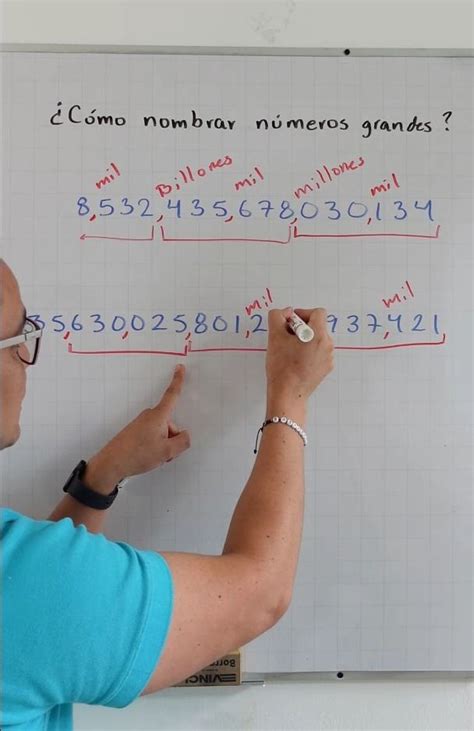 ¿Cómo nombrar números grandes?
mil Billones mil millones mil
8,532,435,678,030,134
mil mil
35,630,025,801,2 937,421